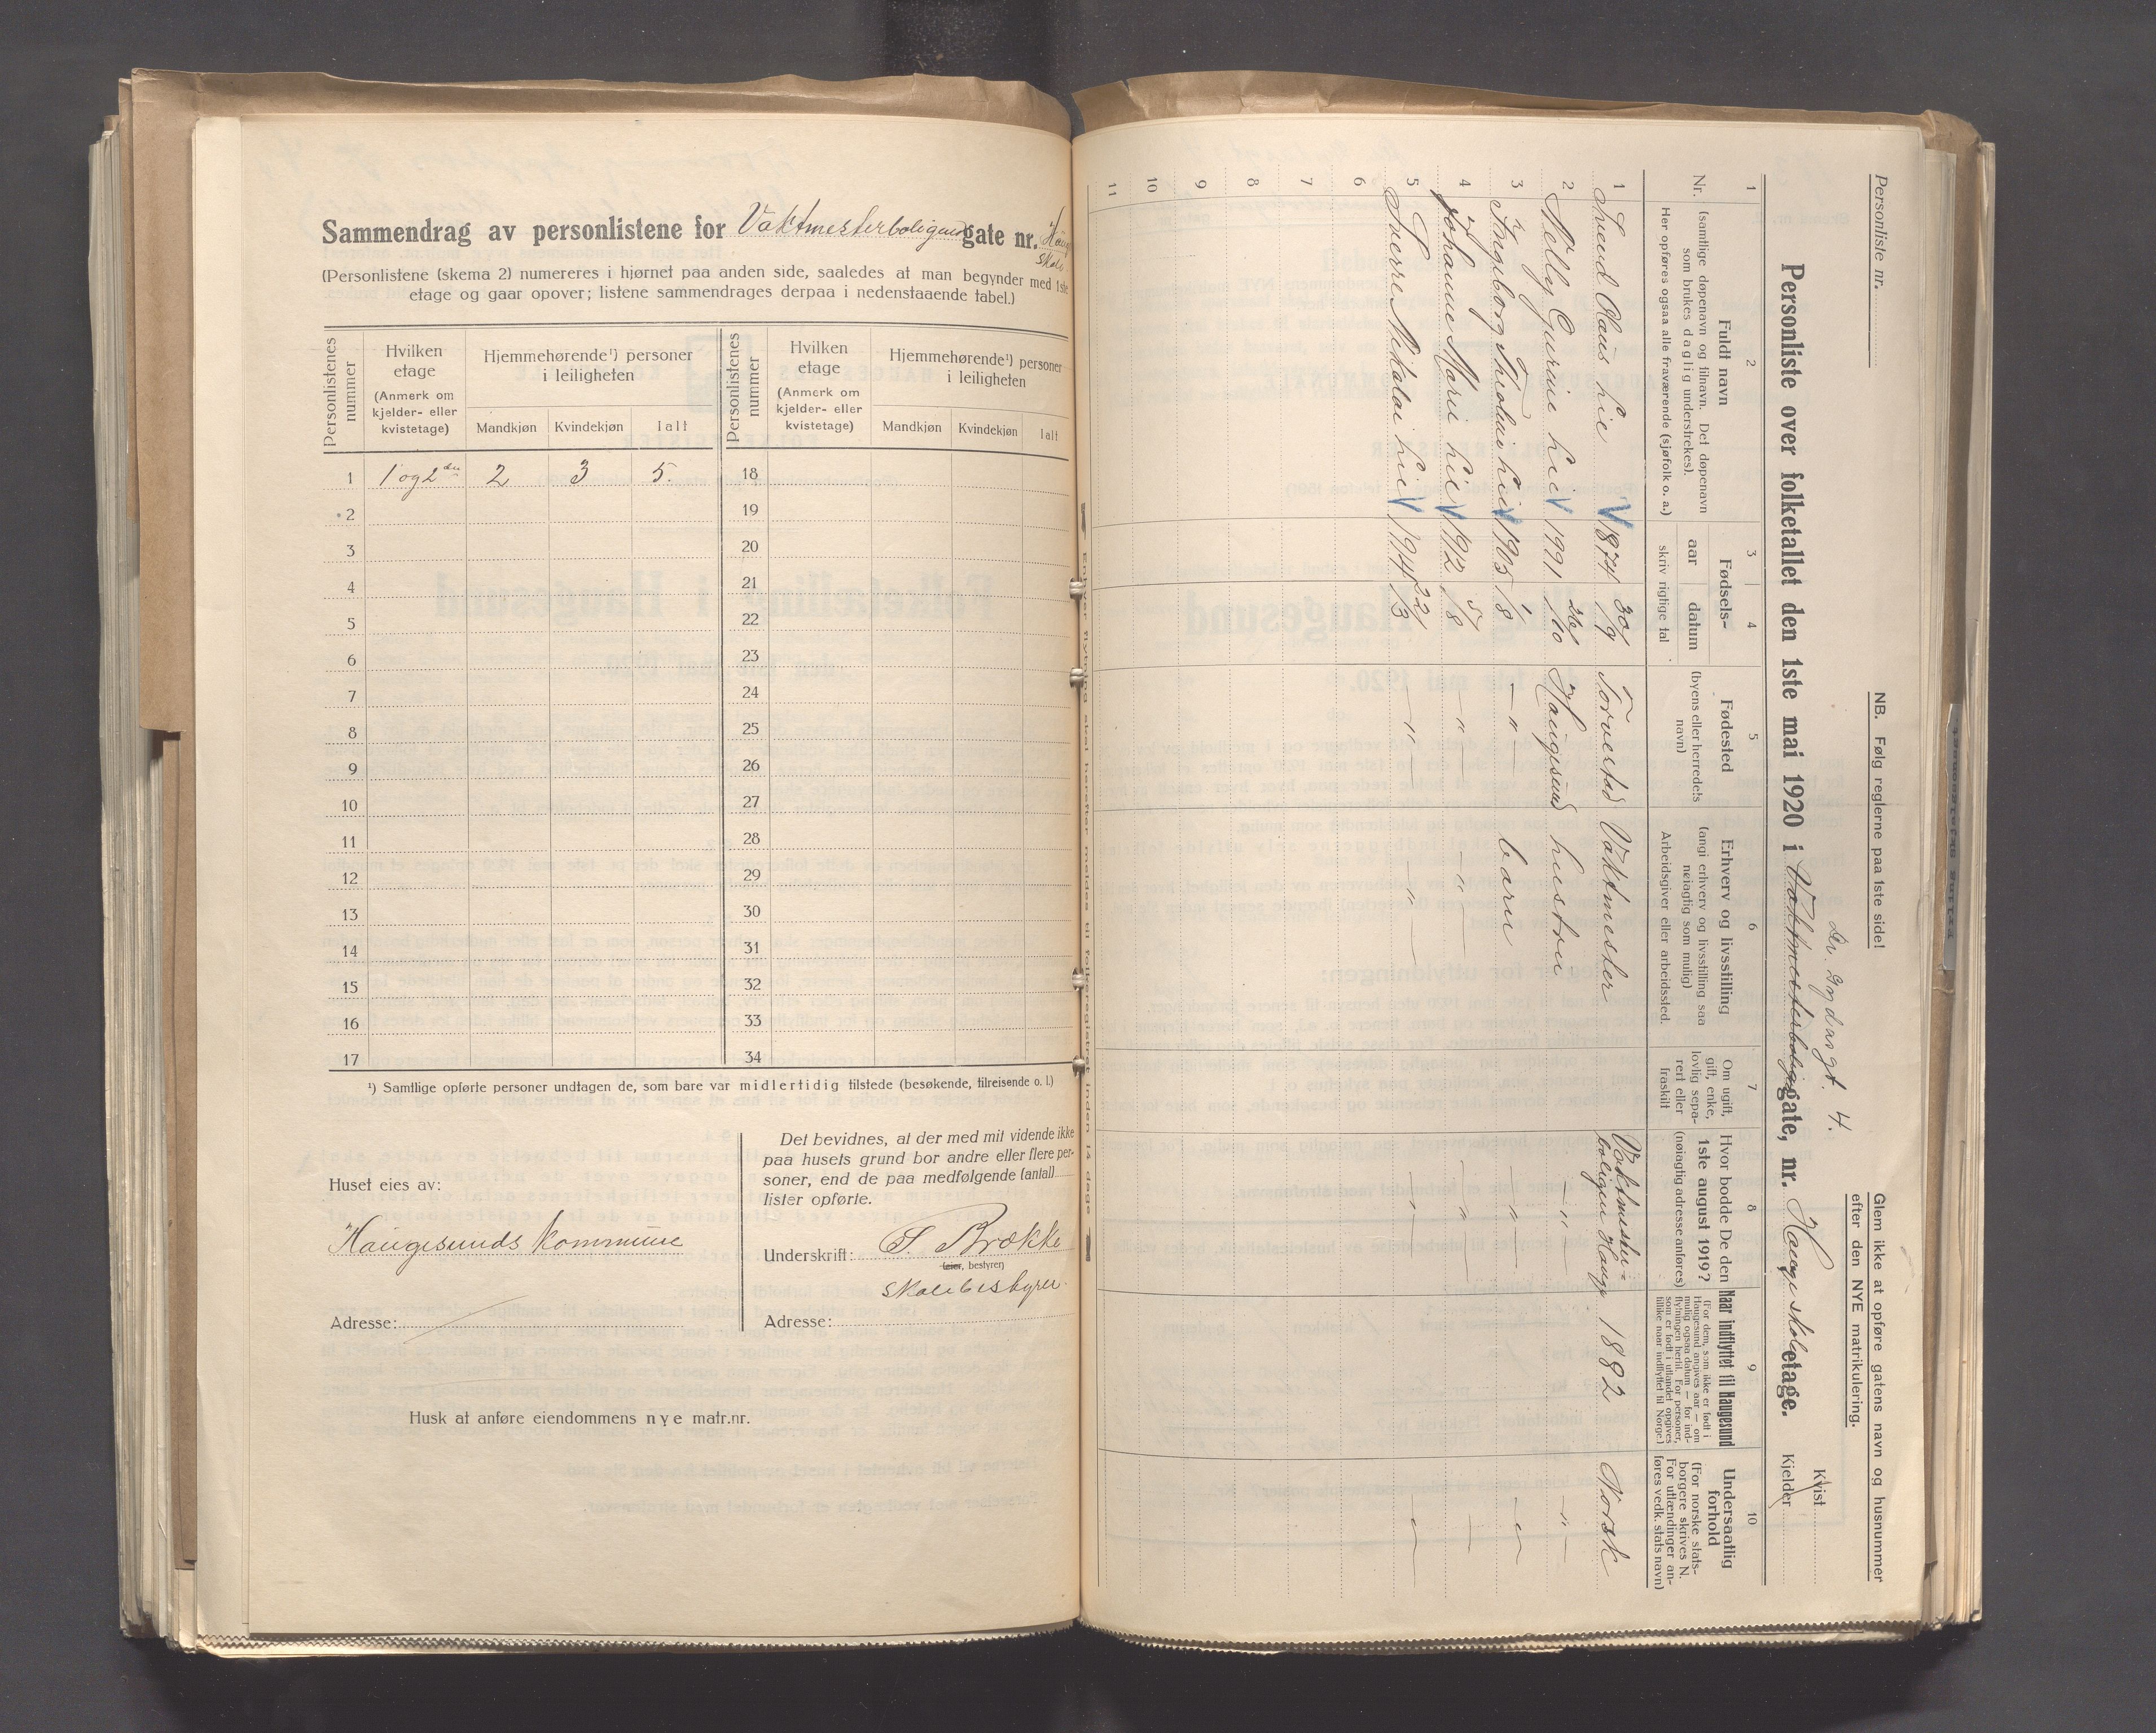 Sammendrag av personlistene for Vaktmesterboligen gate nr. Haug
skole
(Personlistene (skema 2) numereres i hjørnet paa anden side, saaledes at man begynder med 1ste
etage og gaar opover; listene sammendrages derpaa i nedenstaaende tabel.)
Personlistenes nummer
Hvilken etage (Anmerk om kjelder- eller kvistetage)
Hjemmehørende¹) personer i leiligheten
Mandkjøn Kvindekjøn Ialt
Personlistenes nummer
Hvilken etage (Anmerk om kjelder- eller kvistetage)
Hjemmehørende¹) personer i leiligheten
Mandkjøn Kvindekjøn Ialt
1 1 og 2den 2 3 5. 18
2 19
3 20
4 21
5 22
6 23
7 24
8 25
9 26
10 27
11 28
12 29
13 30
14 31
15 32
16 33
17 34
¹) Samtlige opførte personer undtagen de, som bare var midlertidig tilstede (besøkende, tilreisende o. l.)
Huset eies av:
Haugesunds kommune
Adresse:
Det bevidnes, at der med mit vidende ikke
paa husets grund bor andre eller flere per-
soner, end de paa medfølgende (antal)
lister opførte.
Underskrift: S. Brække
(eier, bestyrer)
skolebestyrer.
Adresse:
Husk at anføre eiendommens nye matr.nr.
Enhver flytning skal herefter meldes til folkeregistret inden 14 dage
Personliste nr.
NB. Følg reglerne paa 1ste side!
Glem ikke at opføre gatens navn og husnummer
efter den NYE matrikulering.
4.
Kvist
Personliste over folketallet den 1ste mai 1920 i Vaktmesterboligen gate, nr. Hauge skole etage. Kjelder
1 2 3 4 5 6 7 8 9 10
Nr.
Fuldt navn
(samtlige døpenavn og tilnavn. Det døpenavn
som brukes daglig understrekes).
Her opføres ogsaa alle fraværende (sjøfolk o. a.)
Fødsels-
aar datum
skriv rigtige tal
Fødested
(byens eller herredets
navn)
Erhverv og livsstilling
(angi erhverv og livsstilling saa
nøiagtig som mulig)
Arbeidsgiver eller arbeidssted.
Om ugift,
gift, enke,
lovlig sepa-
rert eller
fraskilt
Hvor bodde De den
1ste august 1919?
(nøiagtig adresse anføres)
Naar indflyttet til Haugesund
(For dem, som ikke er født i
Haugesund angives aar — om
mulig ogsaa datum — for ind-
flytningen hertil. For personer,
som er født i utlandet opgives
tillike naar indflyttet til Norge.)
Undersaatlig
forhold
(For norske stats-
borgere skrives N.
For utlændinger an-
føres vedk. stats navn)
1 Svend Olaus Lie 1874 30/9 Torvestad Vaktmester Vaktmester-
boligen Hauge 1882 Norsk
2 Nelly Gurine Lie 1991 26/10 Haugesund hustru — " — — " —
3 Ingeborg Theoline Lie 1905 1/8 — " — barn — " — — " —
4 Johanne Marie Lie 1912 5/8 — " — — " — — " — — " —
5 Sverre Nikolai Lie 1914 22/3 — " — — " — — " — — " —
6
7
8
9
10
11